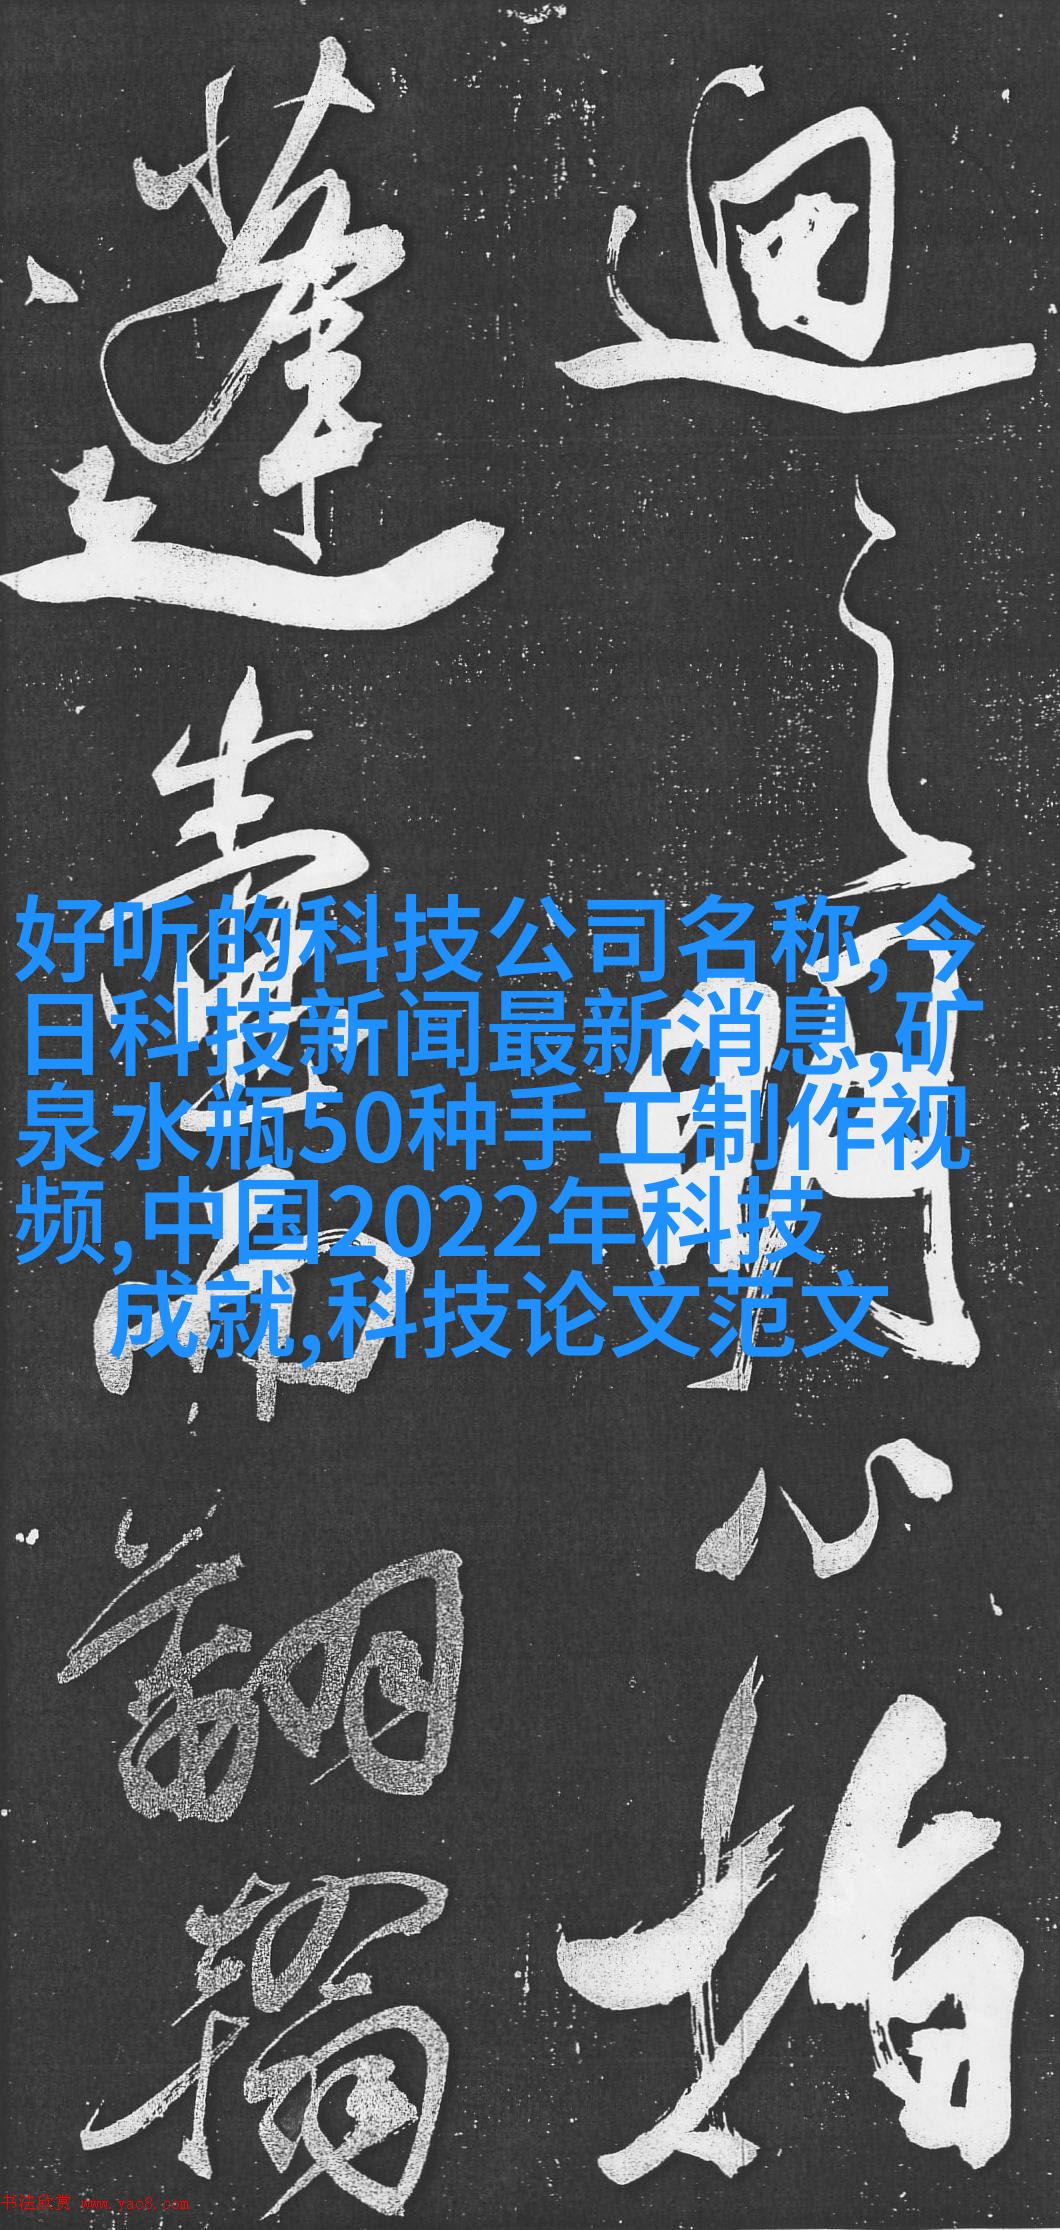 迴
之
心
指
蓬
壺
而
翻
翰
好听的科技公司名称,今
日科技新闻最新消息,矿
泉水瓶50种手工制作视
频,中国2022年科技
成就,科技论文范文
书法欣赏 www.yac8.com